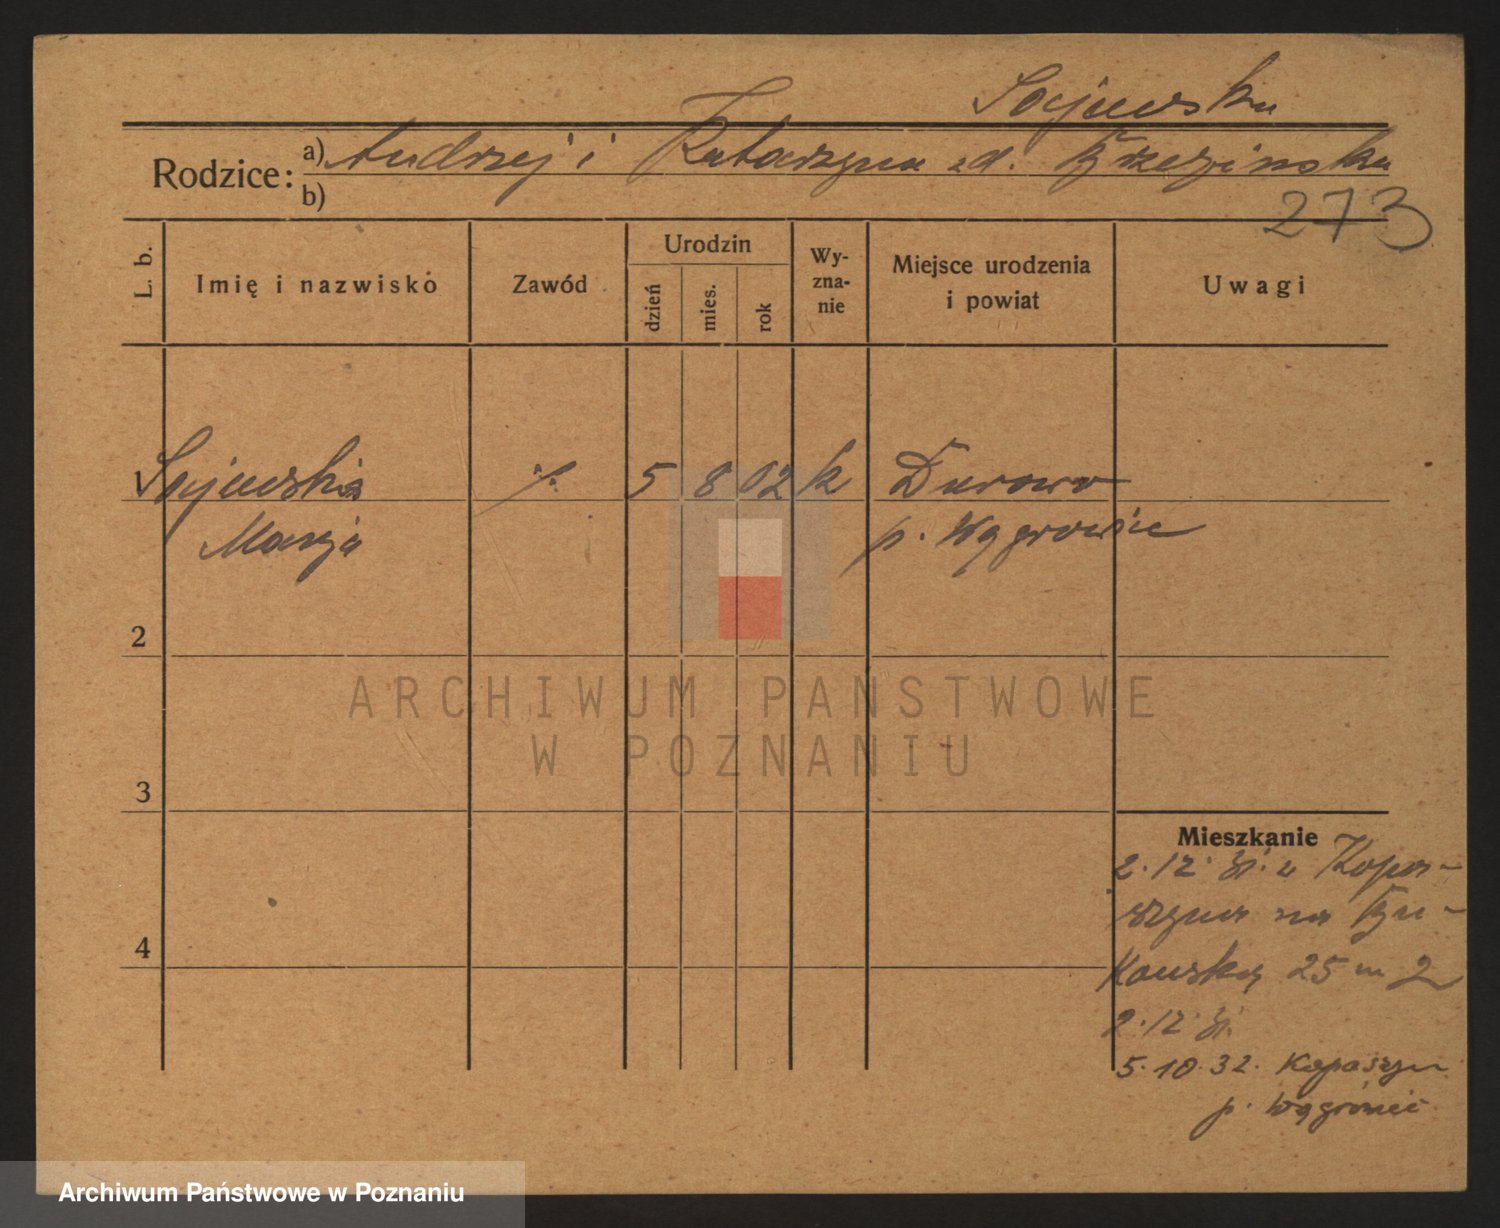 Sajewska
Rodzice: a) Andrzej i Katarzyna zd. Brzezińska
b)
273
L. b.
Imię i nazwisko
Zawód
Urodzin
dzień
mies.
rok
Wy-
zna-
nie
Miejsce urodzenia
i powiat
Uwagi
Sajewska
Marja
·/·
5 8 02 k
Durowo
p. Wągrowiec
2
3
4
ARCHIWUM PAŃSTWOWE
W POZNANIU
Mieszkanie
2.12.31. z Kopa-
szyna na Bu-
kowską 25 m 2
2.12.31.
5.10.32. Kopaszyn
p. Wągrowiec
Archiwum Państwowe w Poznaniu